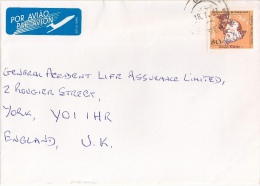 POR AVIÃO
PAR AVION
GENERAL ACCIDENT LIFE ASSURANCE LIMITED,
2 ROUGIER STREET,
YORK, YO1 1HR
ENGLAND, U.K.